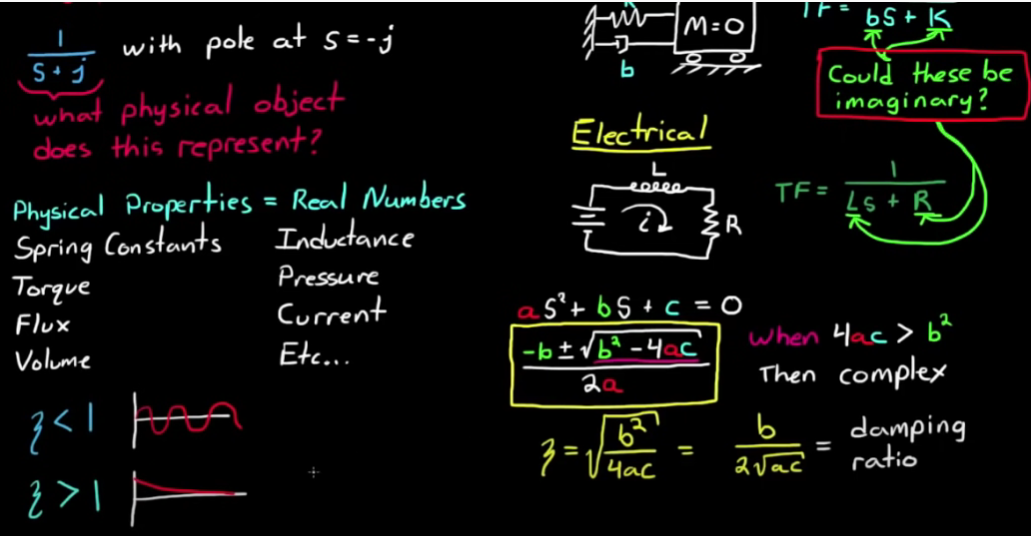 1/(S + j) with pole at S = -j
what physical object
does this represent?
Physical Properties = Real Numbers
Spring Constants
Torque
Flux
Volume
Inductance
Pressure
Current
Etc...
ʒ < 1
ʒ > 1
M=0
b
TF = bS + K
Could these be
imaginary?
Electrical
L
i
R
TF = 1/(Ls + R)
aS² + bS + c = 0
(-b ± √(b² - 4ac))/(2a)
when 4ac > b²
Then complex
ʒ = √(b²/4ac) = b/(2√ac) = damping
ratio